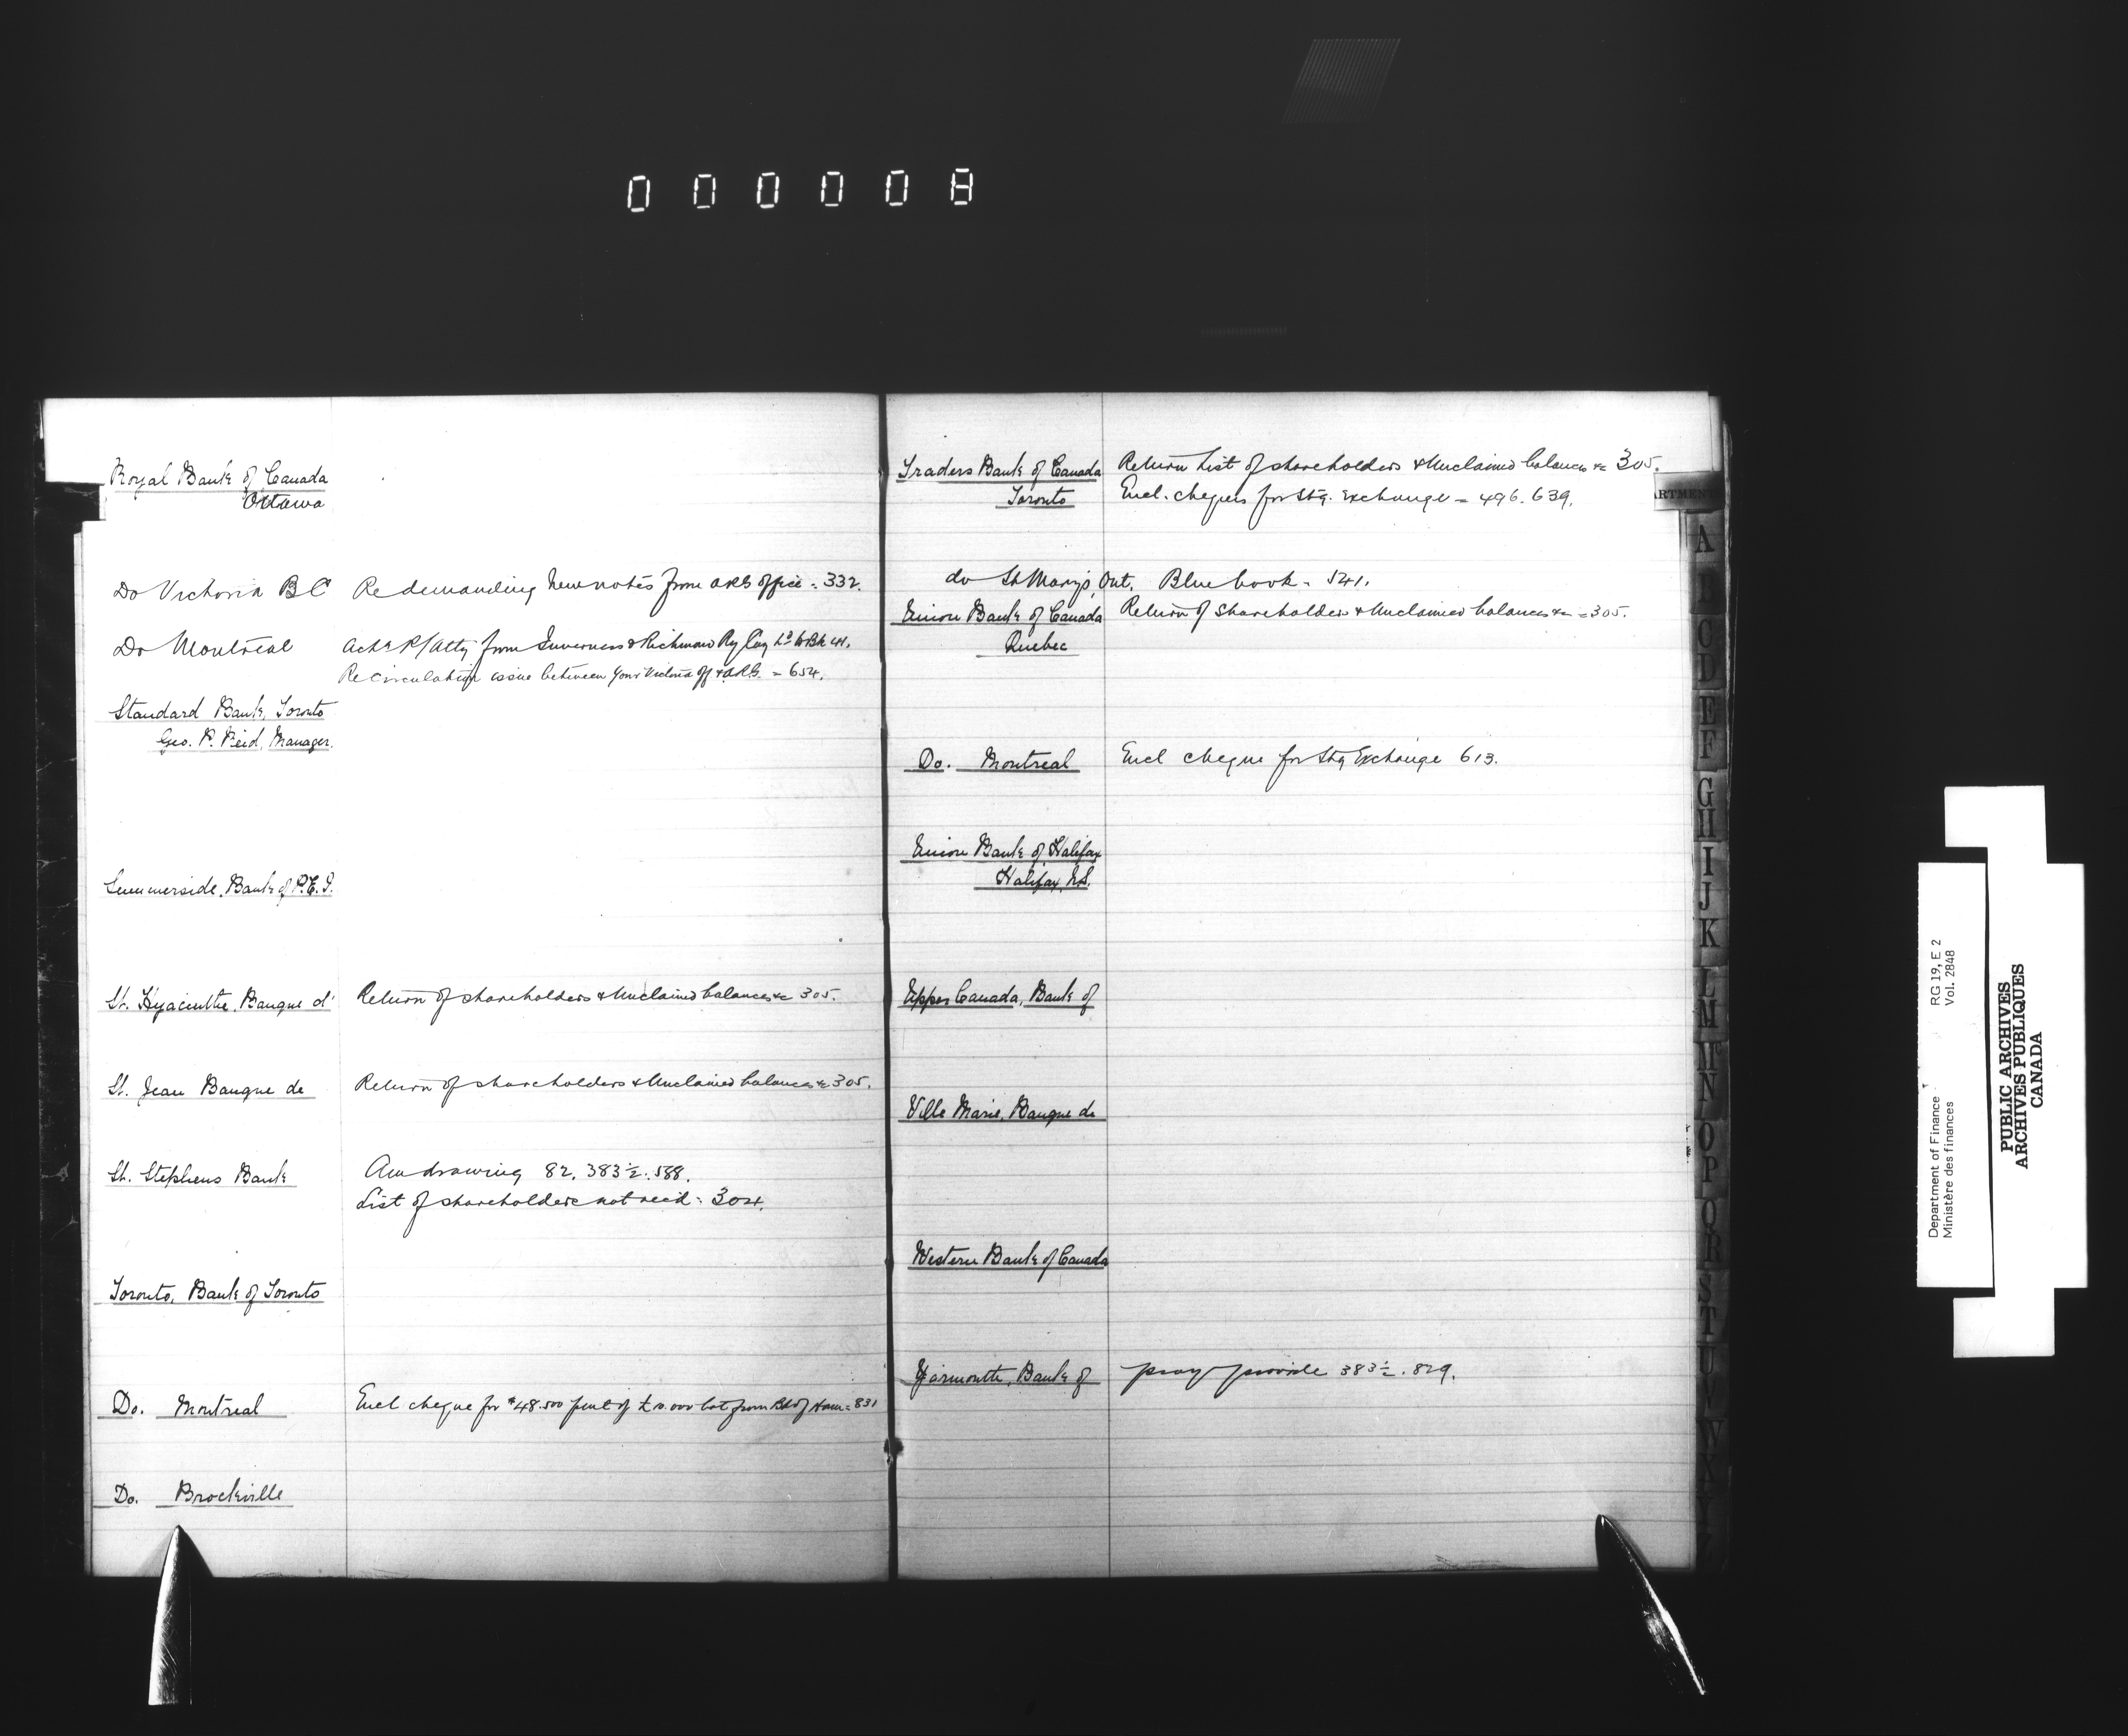 000008
Royal Bank of Canada
Ottawa
Do Victoria B C Re demanding new notes from ARG office = 332.
Do Montreal Ackg P/Atty from Inverness & Richmond Ry Coy Ld 41.
Re circulation issue between your Victoria off & ARG. = 654.
Standard Bank, Toronto
Geo. P. Reid, Manager.
Summerside, Bank of P.E.I.
St. Hyacinthe, Banque d' Return of shareholders & Unclaimed balances &c 305.
St. Jean Banque de Return of shareholders & Unclaimed balances &c 305.
St. Stephens Bank Am drawing 82. 383½. 588.
List of shareholders not recd = 304.
Toronto, Bank of Toronto
Do. Montreal Encl cheque for $48.500 of £10.000 bot from Bk of Ham = 831
Do. Brockville
Traders Bank of Canada Return List of shareholders & Unclaimed balances &c 305.
Toronto Encl. cheques for Stg. Exchange = 496. 639.
do St Mary's, Ont. Blue book = 541.
Union Bank of Canada Return of Shareholders & Unclaimed balances &c = 305.
Quebec
Do. Montreal Encl cheque for Stg Exchange 613.
Union Bank of Halifax
Halifax, N.S.
Upper Canada, Bank of
Ville Marie, Banque de
Western Bank of Canada
Yarmouth, Bank of pray provide 383½. 829.
ARTMENT
A
B
C
D
E
F
G
H
I
J
K
L
M
Mc
N
O
P
Q
R
S
T
U
V
W
X
Y
Z
Department of Finance RG 19, E 2
Ministère des finances Vol. 2848
PUBLIC ARCHIVES
ARCHIVES PUBLIQUES
CANADA